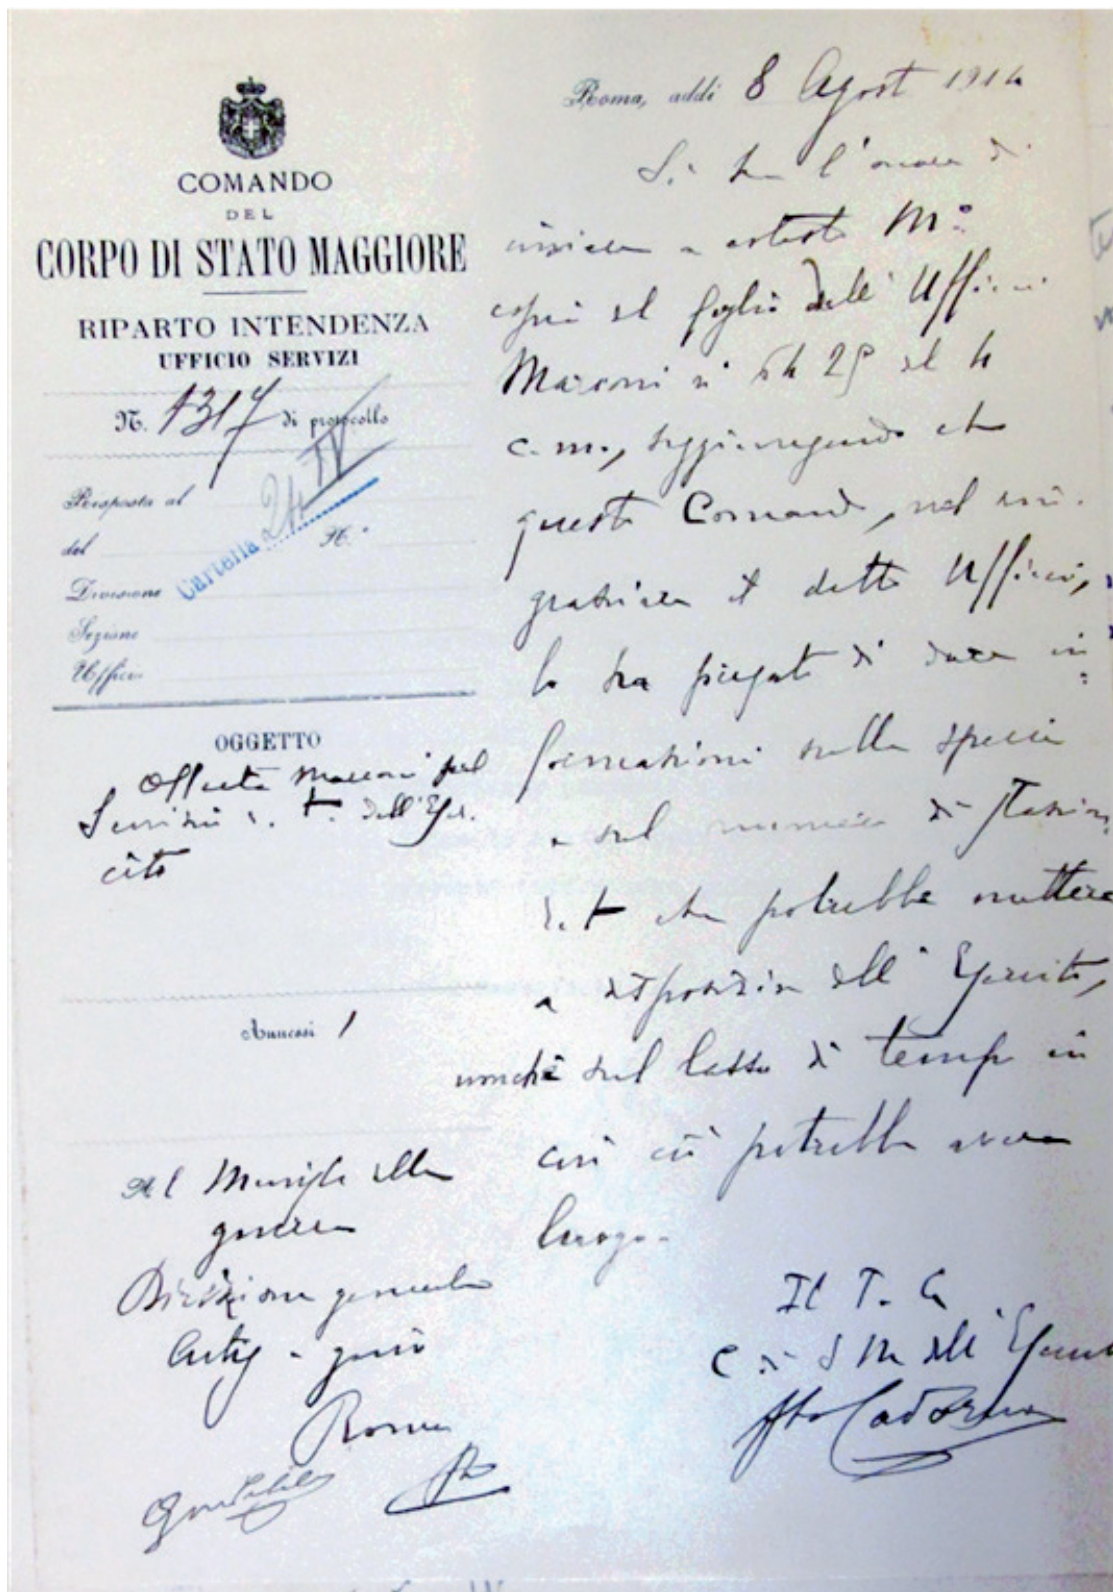 COMANDO
DEL
CORPO DI STATO MAGGIORE
RIPARTO INTENDENZA
UFFICIO SERVIZI
N. 1317 di protocollo
Risposta al
del N.°
Cartella 24 IV
Divisione
Sezione
Ufficio
OGGETTO
Offerta Marconi pel
Servizio r. t. dell'Eser.
cito
Annessi 1
Al Ministero della
guerra
Direzione generale
Artig. e genio
Roma
Roma, addì 8 Agosto 1914
Si ha l'onore di
inviare a codesto M.º
copia del foglio dell'Ufficio
Marconi del 4
c. m., soggiungendo che
questo Comando, nel rin.
graziare il detto Ufficio,
lo ha pregato di dare in
formazioni sulla specie
e sul numero di stazioni
r. t che potrebbe mettere
a disposizione dell'Esercito,
nonchè sul lasso di tempo in
cui ciò potrebbe avere
luogo.
Il T. G.
C. di S M dell'Esercito
fto Cadorna